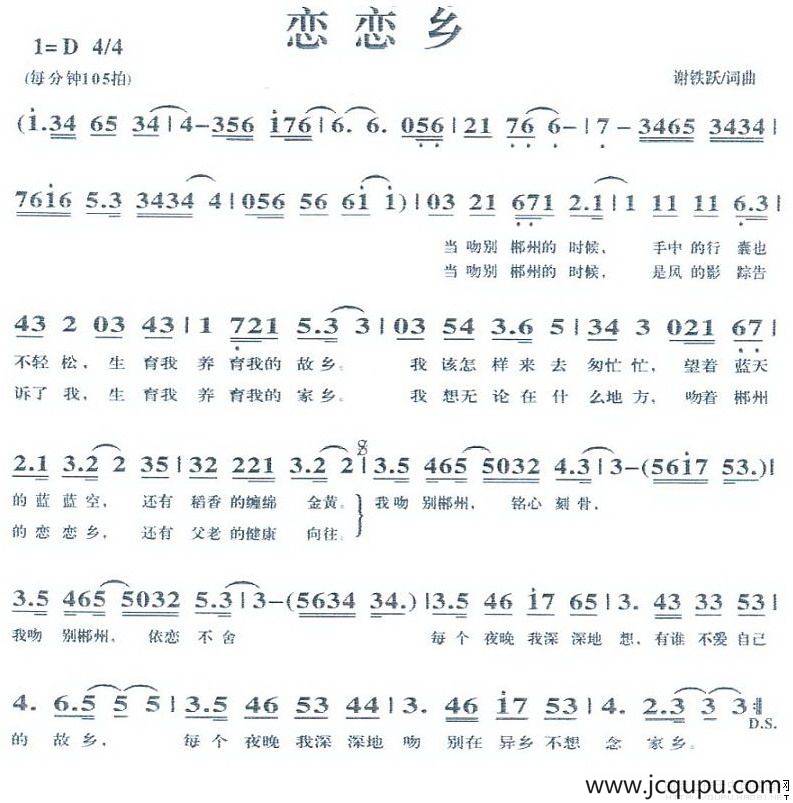 恋恋乡
1=D 4/4
(每分钟105拍)
谢铁跃/词曲
(1.34 65 34|4-356 176|6. 6. 056|21 76 6-|7 - 3465 3434|
7616 5.3 3434 4|056 56 61 1)|03 21 671 2.1|1 11 11 6.3|
当吻别 郴州的 时候， 手中 的行 囊也
当吻别 郴州的 时候， 是风 的影 踪告
43 2 03 43|1 721 5.3 3|03 54 3.6 5|34 3 021 67|
不轻 松， 生 育我 养 育我的 故乡。 我 该怎 样来 去 匆忙 忙， 望着 蓝天
诉了 我， 生 育我 养 育我的 家乡。 我 想无 论在 什 么地 方， 吻着 郴州
2.1 3.2 2 35|32 221 3.2 2|3.5 465 5032 4.3|3-(5617 53.)|
的 蓝 蓝空， 还有 稻香 的缠绵 金黄。 我吻 别郴州， 铭心 刻骨，
的 恋 恋乡， 还有 父老 的健康 向往。
3.5 465 5032 5.3|3-(5634 34.)|3.5 46 17 65|3. 43 33 53|
我吻 别郴州， 依恋 不 舍 每个 夜晚 我深 深地 想，有谁 不爱 自己
4. 6.5 5 5|3.5 46 53 44|3. 46 17 53|4. 2.3 3 3:‖
D.S.
的 故 乡， 每个 夜晚 我深 深地 吻 别在 异乡 不想 念 家乡。
www.jcqupu.com